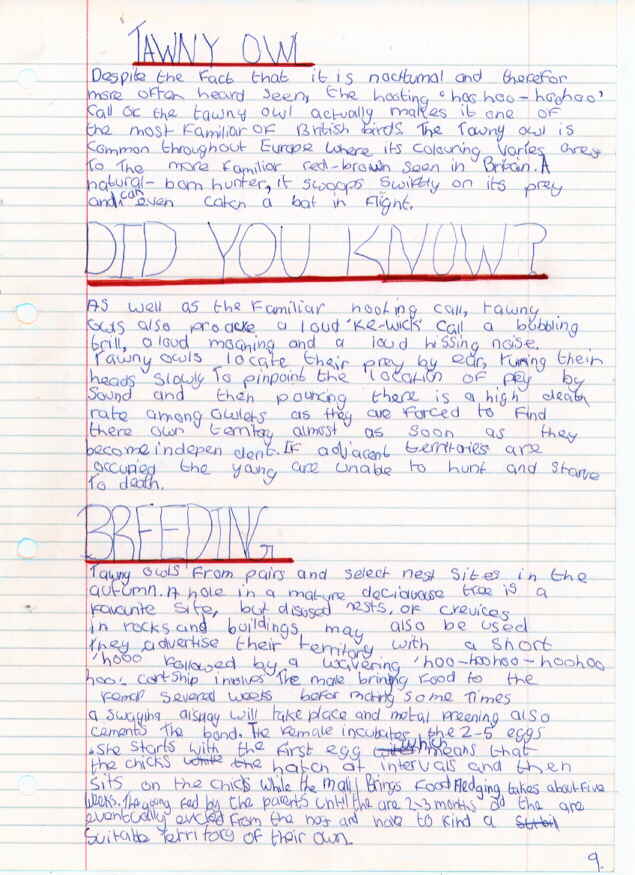 TAWNY OWL
Despite the fact that it is nocturnal and therefor
more often heard seen, the hooting 'hoo hoo-hoohoo'
call of the tawny owl actually makes it one of
the most familiar of British birds The Tawny owl is
common throughout Europe where its colouring varies grey
to the more familiar red-brown seen in Britain. A
natural-born hunter, it swoops swiftly on its prey
and can even catch a bat in flight.
DID YOU KNOW?
As well as the familiar hooting call, tawny
owls also produce a loud 'ke-wick' call a bubbling
trill, a loud moaning and a loud hissing noise.
Tawny owls locate their prey by ear, turning their
heads slowly to pinpoint the location of prey by
sound and then pouncing there is a high death
rate among owlets as they are forced to find
there own territory almost as soon as they
become indepen dent. If adjacent territories are
occupied the young are unable to hunt and starve
to death.
BREEDING
Tawny owls from pairs and select nest sites in the
autumn. A hole in a mature deciduase tree is a
favourite site, but disused nests, or crevices
in rocks and buildings may also be used
They advertise their territory with a short
'hooo followed by a wavering 'hoo-hoohoo-hoohoo
hoo'. cortship involves The male bringing food to the
femal several weeks befor mating some times
a swaying display will take place and mutal preening also
cements The bond. The female incubates the 2-5 eggs
. she starts with the first egg which means that
the chicks hatch at intervals and then
sits on the chicks while the mall brings food Fledging takes about five
weeks. The young fed by the parents until the are 2-3 months old the are
eventually evicted from the nest and have to find a
suitable territory of their own.
9.